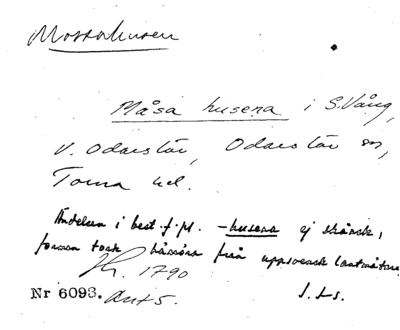 Mossahusen
Måsa husena i S. Vång,
V. Odarslöv, Odarslöv sn,
Torna hd.
Ändelsen i best. f. pl. -husena ej skånsk,
formen torde härröra från uppsvensk lantmätare.
1790
Nr 6093. Avt 5.